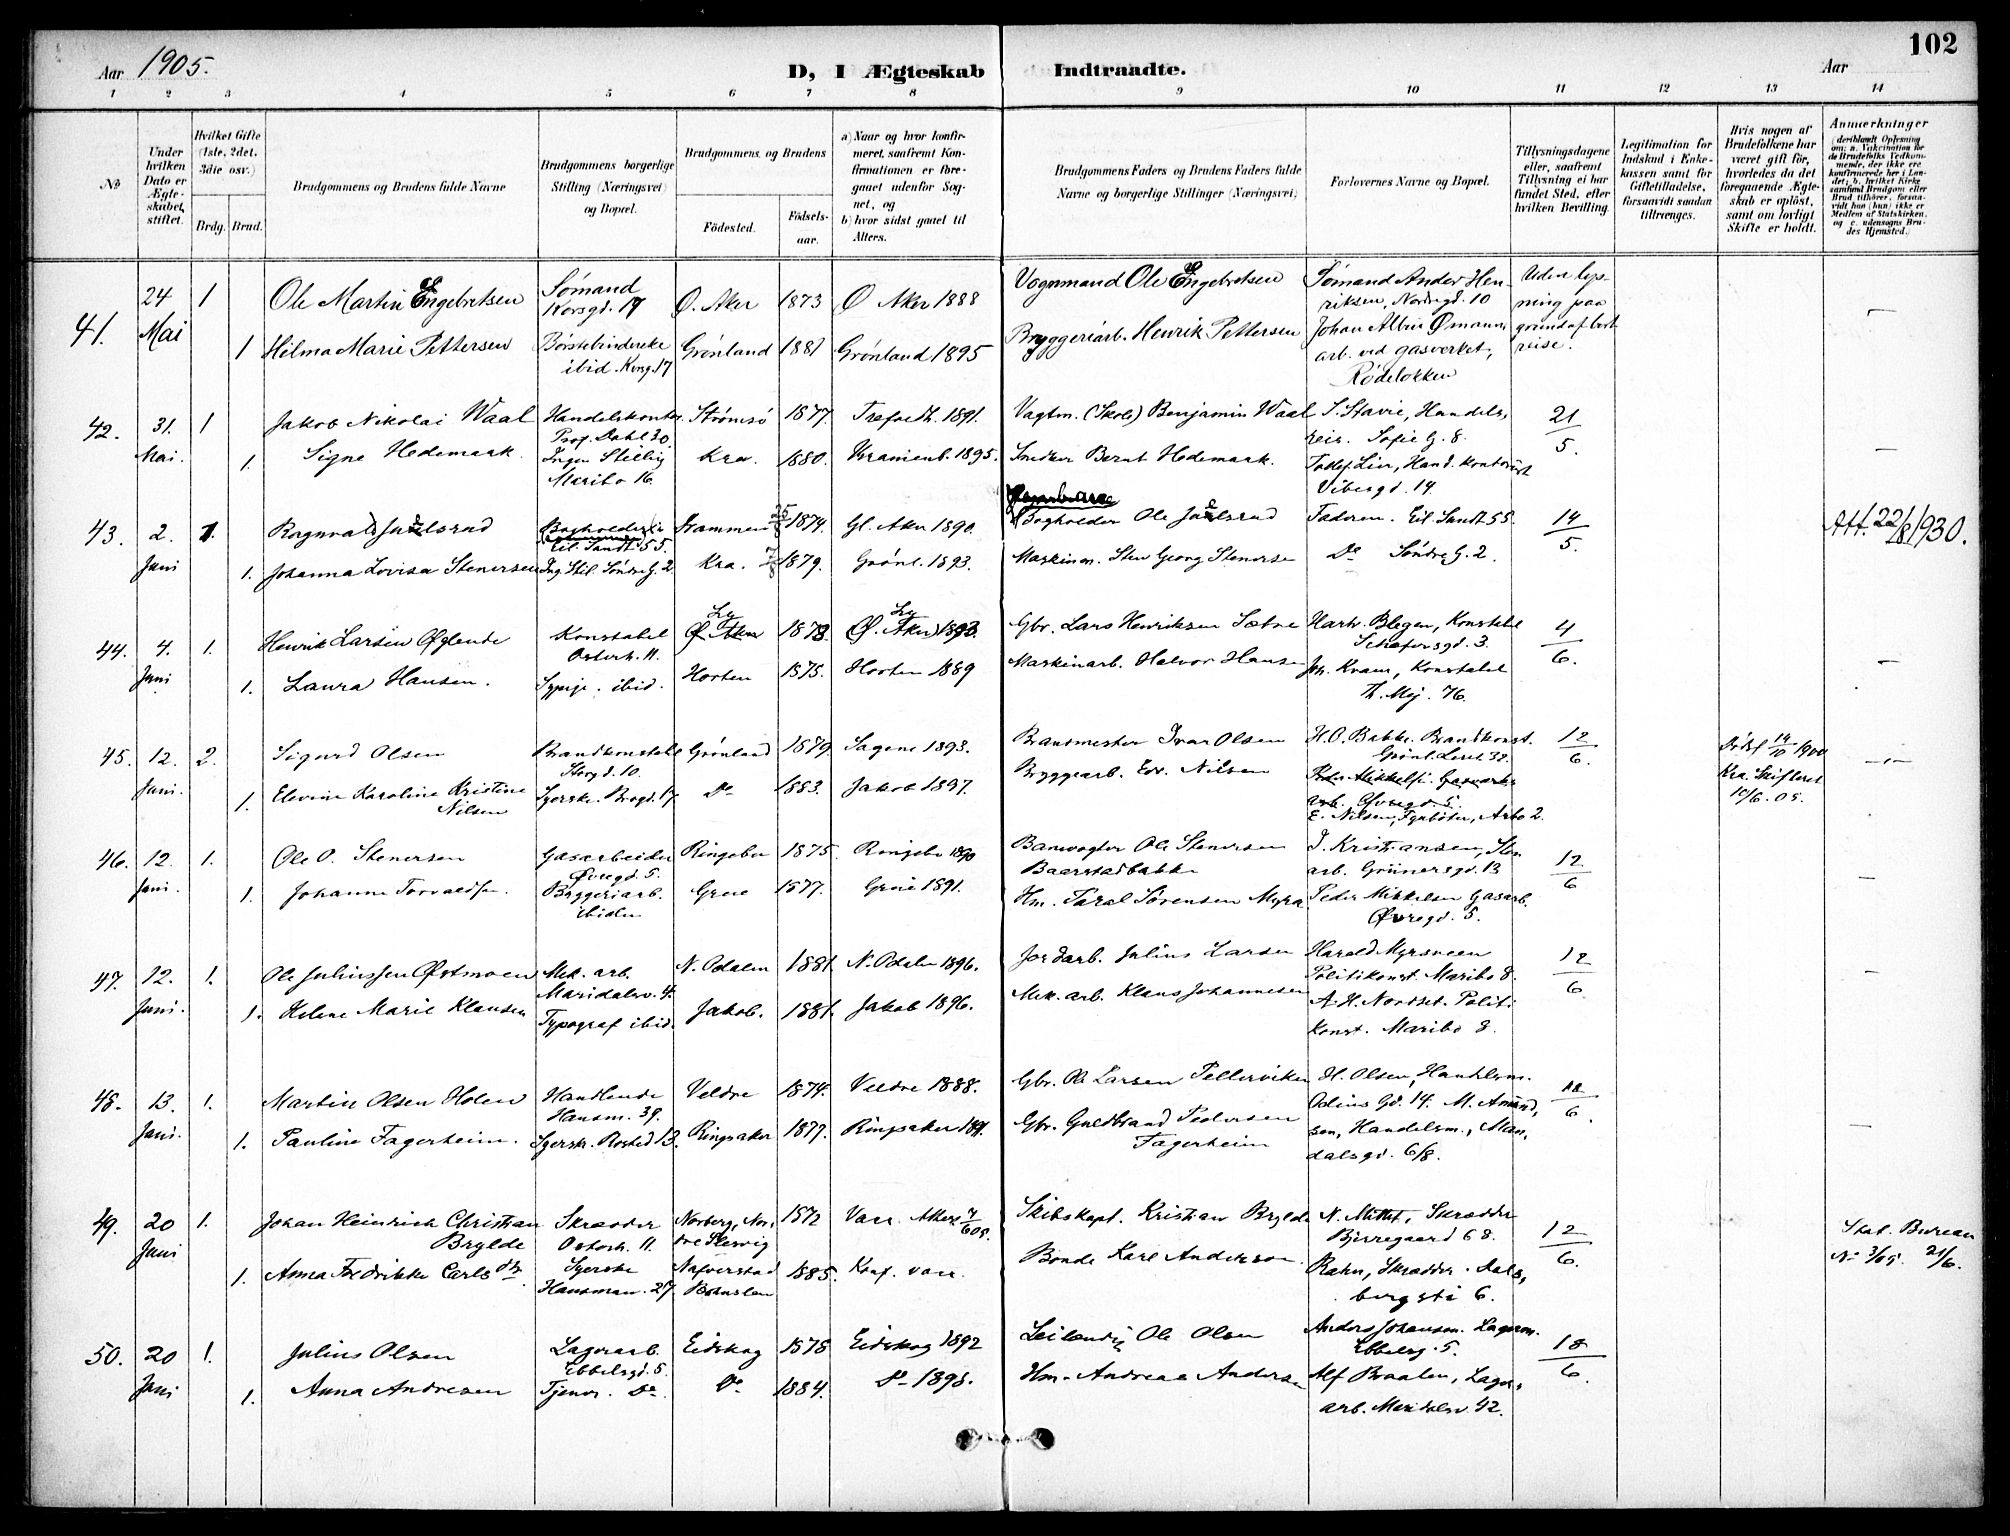 102
Aar 1905.
D, I Ægteskab Indtraadte.
Aar
1 2 3 4 5 6 7 8 9 10 11 12 13 14
No
Under hvilken Dato er Ægteskabet stiftet.
Hvilket Gifte (1ste, 2det, 3die osv.)
Brdg. Brud.
Brudgommens og Brudens fulde Navne
Brudgommens borgerlige Stilling (Næringsvei) og Bopæl.
Brudgommens og Brudens
Födested.
Födselsaar.
a) Naar og hvor konfirmeret, saafremt Konfirmationen er foregaaet udenfor Sognet, og
b) hvor sidst gaaet til Alters.
Brudgommens Faders og Brudens Faders fulde Navne og borgerlige Stillinger (Næringsvei)
Forlovernes Navne og Bopæl.
Tillysningsdagene eller, saafremt Tillysning ei har fundet Sted, efter hvilken Bevilling.
Legitimation for Indskud i Enkekassen samt for Giftetilladelse, forsaavidt saadan tiltrænges.
Hvis nogen af Brudefolkene har været gift för, hvorledes da det foregaaende Ægteskab er oplöst, samt om lovligt Skifte er holdt.
Anmærkninger
(deriblandt Oplysning om: a. Vakcination for de Brudefolks Vedkommende, der ikke ere konfirmerede her i Landet; b. hvilket Kirkesamfund Brudgom eller Brud tilhörer, forsaavidt han (hun) ikke er Medlem af Statskirken, og c. udensogns Brudes Hjemsted.)
41. 24 Mai 1 Ole Martin Engebretsen Sømand Korsgd. 17 Ø. Aker 1873 Ø Aker 1888 Vognmand Ole Engebretsen Sømand Anders Henriksen, Nordregd. 10 Uden lysning paa grund af bortreise.
1 Hilma Marie Pettersen Børstebinderske ibid. Korsg. 17 Grønland 1881 Grønland 1895 Bryggeriarb. Henrik Pettersen Johan Albin Ømann arb. ved gasverket, Rødeløkken
42. 31. Mai. 1 Jakob Nikolai Waal Handelskontor. Prof. Dahl 30. Strømsø 1877. Trefoldh. 1891. Vagtm. (Skole) Benjamin Waal S. Stavie, Handelsreis. Sofie G. 8. 21/5.
1. Signe Hedemark. Ingen Stilling Maribo 16. Kra. 1880. Uranienb. 1895. Snedker Bernt Hedemark. Tollef Lien, Hand. kontorist Vibesgd. 14.
43. 2. Juni 1. Ragnvald Juelsrud Bogholder Eil. Sundt 55. Drammen 1874. Gl. Aker 1890. Bogholder Ole Juelsrud Faderen. Eil. Sundt 55. 14/5. Att. 22/8 1930.
1. Johanna Lovisa Stenersen Ing. Stil. Søndre G. 2 Kra. 1879. Grønl. 1893. Maskinm. Sten Georg Stenersen Do Søndre G. 2.
44. 4. Juni 1. Henrik Larsen Øglende Konstabel Osterh. 11. 1878. 1893. Gbr. Lars Henriksen Sætre Hartv. Blegen, Konstabel Schøfersgd. 3. 4/6.
1. Laura Hansen. Sypige. ibid. Horten 1875. Horten 1889 Maskinarb. Halvor Hansen Joh. Kvam, Konstabel Th. Mej. 76.
45. 12. Juni. 2. Sigurd Olsen Brandkonstabel Storgd. 10. Grønland 1879. Sagene 1893. Brandmester Ivar Olsen H. O. Bakke. Brandkonst. Grønl. Leret 32. 12/6. Dødsf. 14/10 1900 Kra. Skifteret 10/6. 05.
1. Elevine Karoline Kristine Nilsen Syerske. Brogd. 17 Do 1883. Jakob 1897. Bryggearb. Edv. Nilsen Peder Mikkelsen. Gasverksarb. Øvregd. 5. E. Nilsen, Fyrbøter, Arbo 2.
46. 12. Juni. 1. Ole O. Stenersen Gasarbeider Øvregd. 5. Ringebu 1875. Ringebu 1890 Banevogter Ole Stenersen Baarstadbakke J. Kristiansen, Sten arb. Grünersgd. 13 12/6
1. Johanne Torvaldsen. Bryggeriarb. ibidem Grue 1877. Grue 1891. Hm. Taral Sørensen Myra Peder Mikkelsen Gasarb. Øvregd. 5.
47. 12. Juni. 1. Ole Juliussen Østmoen Mek. arb. Maridalsv. 4. N. Odalen 1881. N. Odalen 1896. Jordarb. Julius Larsen Harald Myrsveen Politikonst. Maribo 8. 12/6
1. Helene Marie Klausen Typograf ibid. Jakob. 1881. Jakob 1896. Mek. arb. Klaus Johannesen A. H. Nordset. Politikonst. Maribo 8.
48. 13. Juni. 1. Martin Olsen Holen Handlende Hansm. 39. Veldre 1874. Veldre 1888. Gbr. Ole Larsen Pellerviken H. Olsen, Handelsm. Odins Gd. 14. M. Amundsen, Handelsm., Mandalsgd. 6/8. 12/6.
1. Pauline Fagerheim. Syersk. Rosted 13. Ringsaker 1877. Ringsaker 1891. Gbr. Guldbrand Pedersen Fagerheim
49. 20 Juni 1. Johan Heinrich Christian Brylde Skrædder Osterh. 11. Norberg, Nordre Slesvig 1872 Vacc. Attest 7/6 05. Skibskapt. Kristian Brylde N. Mittet, Skrædder Bjerregaard 68. 12/6. Stat. Bureau No 3/05. 21/6.
1. Anna Fredrikke Carlsdtr. Syerske Hausman. 27 Nafverstad Bohuslen 1885. Konf. vacc. Bonde Karl Anderson Rahn, Skrædder. Aalsbergsti 6.
50. 20 Juni 1. Julius Olsen Lagerarb. Ebbelsgd. 5. Eidskog 1878 Eidskog 1892 Leilending Ole Olsen Anders Johansen. Lagerm. Ebbelsg. 5. 18/6.
1. Anna Andresen Tjener. Do. Do 1884. Do 1898. Hm. Andreas Andersen Alf Braaten, Lagerarb. Maridalsv. 42.